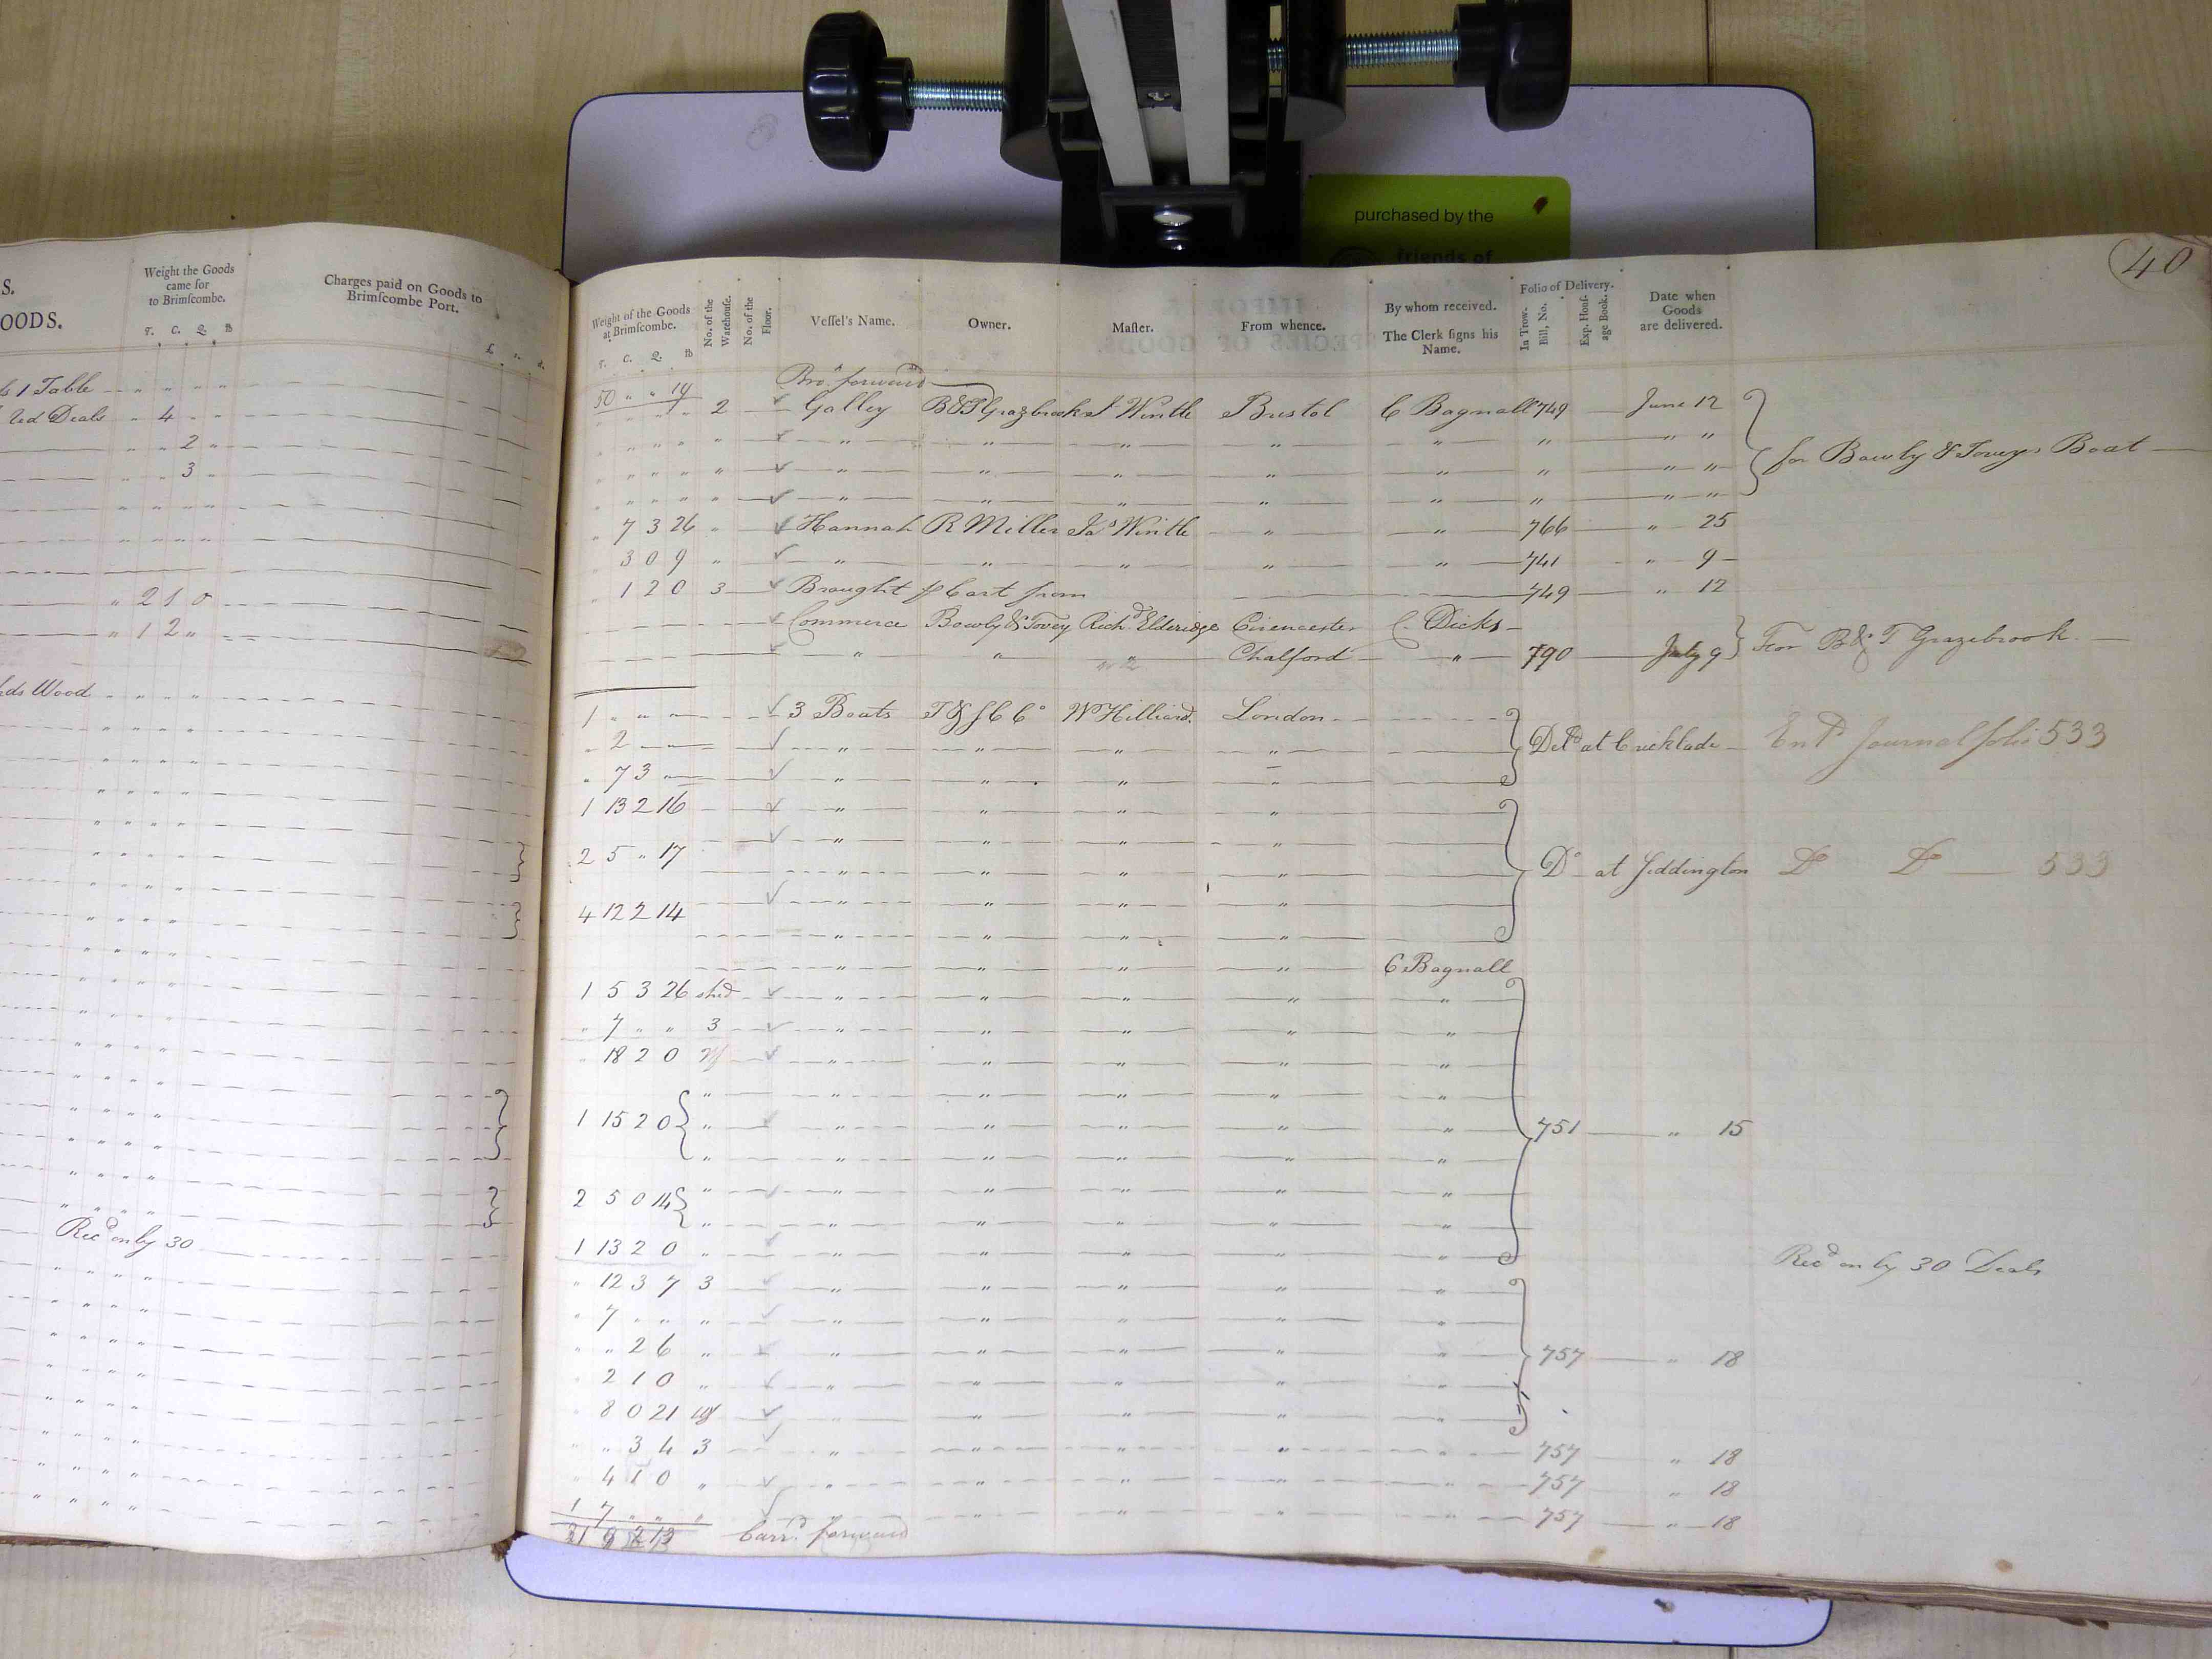 purchased by the
friends of
40
S.
OODS.
Weight the Goods
came for
to Brimſcombe.
T. C. Q. lb
Charges paid on Goods to
Brimſcombe Port.
£ s. d.
1 Table
Deals " 4 " "
" " 2 "
" " 3 "
" 2 1 0
" 1 2 "
Wood
Recd only 30
Weight of the Goods
at Brimſcombe.
T. C. Q. lb
No. of the
Warehouſe.
No. of the
Floor.
Veſſel's Name.
Owner.
Maſter.
From whence.
By whom received.
The Clerk ſigns his
Name.
Folio of Delivery.
In Trow.
Bill, No.
Exp. Houſ.
age Book.
Date when
Goods
are delivered.
Bro. forward
50 " " 19
" " " " 2 Galley B & T Grazebrook J Wintle Bristol C Bagnall 749 June 12
" " " " " " " " " " " " "
" " " " " " " " " " " " " for Bowly & Toveys Boat
" " " " " " " " " " " " "
" 7 3 26 " Hannah R Miller Jas Wintle " " 766 " 25
3 0 9 " " " " " " 741 " 9
" 1 2 0 3 Brought p Cart from 749 " 12
Commerce Bowly & Tovey Richd Elderidge Cirencester C. Dicks
" " " Chalford " 790 July 9 For B & T Grazebrook
1 " " " 3 Boats T & S C Co Wm Hilliard London
" 2 " " " " Deld at Cricklade Entd Journal folio 533
" 7 3 " " " " "
1 13 2 16 " " " "
" " " "
2 5 " 17
" " " " Do at Siddington Do Do 533
4 12 2 14 " " " "
" " " "
" " " " C Bagnall
1 5 3 26 shed " " " " "
" 7 " " 3 " " " " "
" 18 2 0 " " " " "
" " " " "
1 15 2 0 " " " " " " 751 " 15
" " " " " "
2 5 0 14 " " " " " "
" " " " " "
1 13 2 0 " " " " " " Recd only 30 Deals
" 12 3 7 3 " " " " "
" 7 " " " " " " " "
" " 2 6 " " " " " " 757 " 18
" 2 1 0 " " " " " "
" 8 0 21 " " " " "
" " 3 4 3 " " " " " 757 " 18
" 4 1 0 " " " " " " 757 " 18
1 7 " " " " " " " 757 " 18
Carrd forward